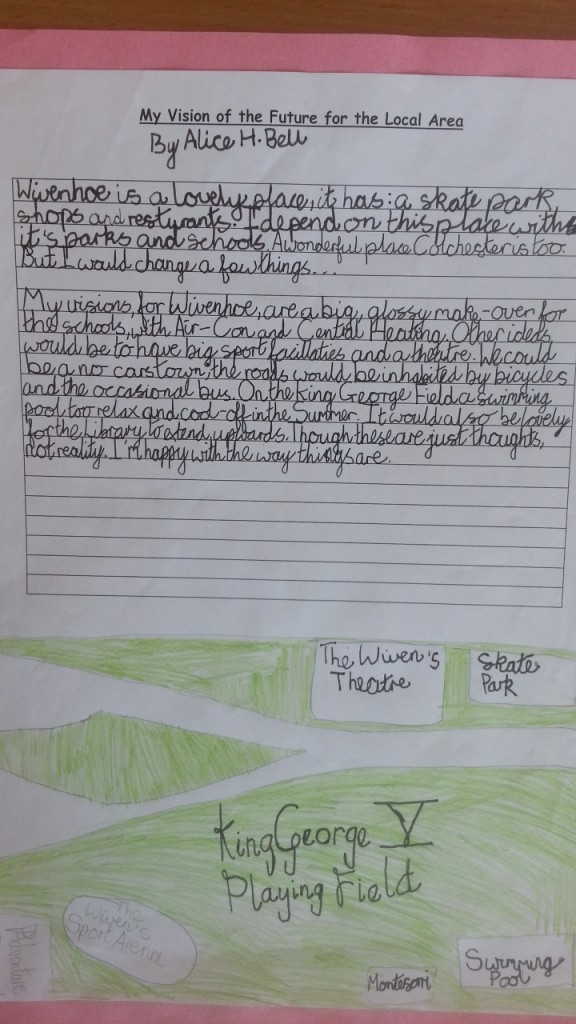 My Vision of the Future for the Local Area
By Alice H. Bell
Wivenhoe is a lovely place, it has: a skate park,
shops and restyrants. I depend on this place with
it's parks and schools. A wonderful place Colchester is too.
But I would change a few things...
My visions, for Wivenhoe, are a big, glossy make-over for
the schools, with Air-Con and Central Heating. Other ideas
would be to have big sport facillaties and a theatre. We could
be a no cars town, the roads would be inhabited by bicycles
and the occasional bus. On the King George Field a swimming
pool too relax and cool-off in the Summer. It would also be lovely
for the Library to extend, upwards. Though these are just thoughts,
not reality. I'm happy with the way things are.
The Wiven's
Theatre
Skate
Park
King George V
Playing Field
The
Wiven's
Sport Arena
Adventure
Montesorri
Swimming
Pool